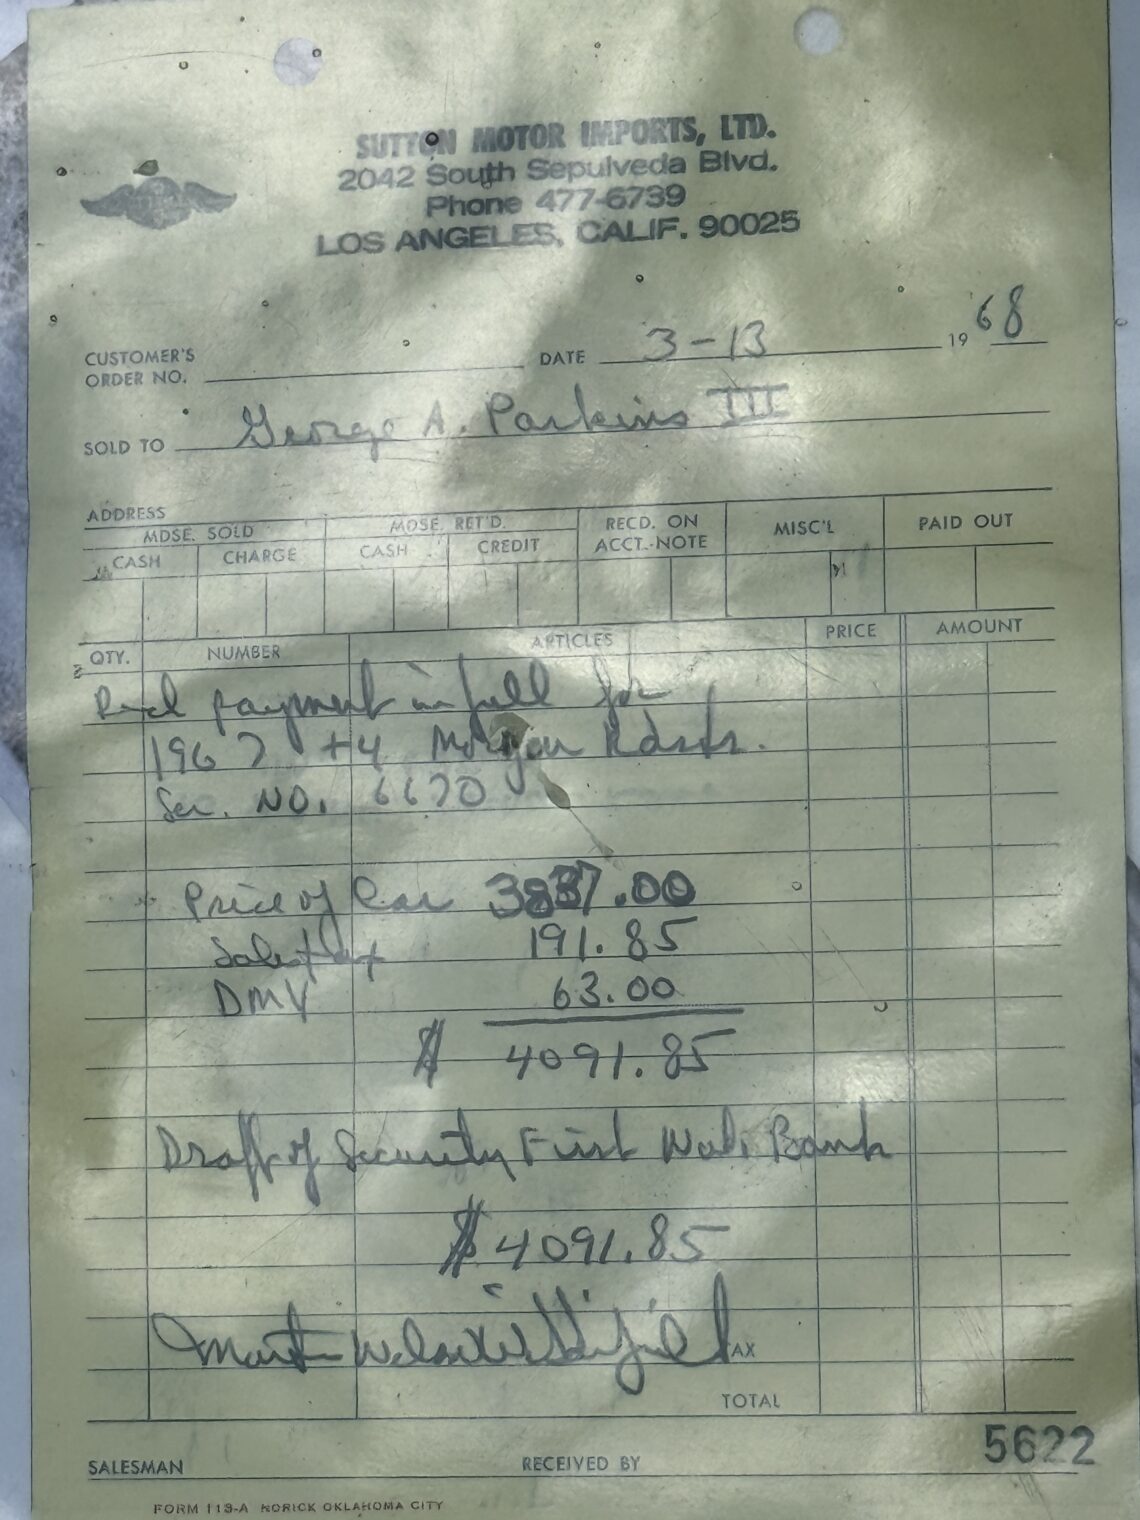 SUTTON MOTOR IMPORTS, LTD.
2042 South Sepulveda Blvd.
Phone 477-6739
LOS ANGELES, CALIF. 90025
CUSTOMER'S
ORDER NO.
DATE 3-13 1968
SOLD TO George A. Parkins III
ADDRESS
MDSE. SOLD MDSE. RET'D. RECD. ON ACCT.-NOTE MISC'L PAID OUT
CASH CHARGE CASH CREDIT
QTY. NUMBER ARTICLES PRICE AMOUNT
Recd payment in full for
1967 +4 Morgan Rdstr.
Ser. NO. 6670
Price of Car 3837.00
Sales tax 191.85
DMV 63.00
$ 4091.85
Draft of Security First Natl Bank
$ 4091.85
TAX
TOTAL
5622
SALESMAN RECEIVED BY
FORM 113-A NORICK OKLAHOMA CITY